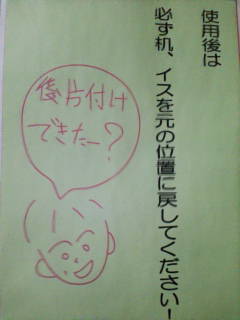 使用後は
必ず机、イスを元の位置に戻してください！
後片付け
できたー？